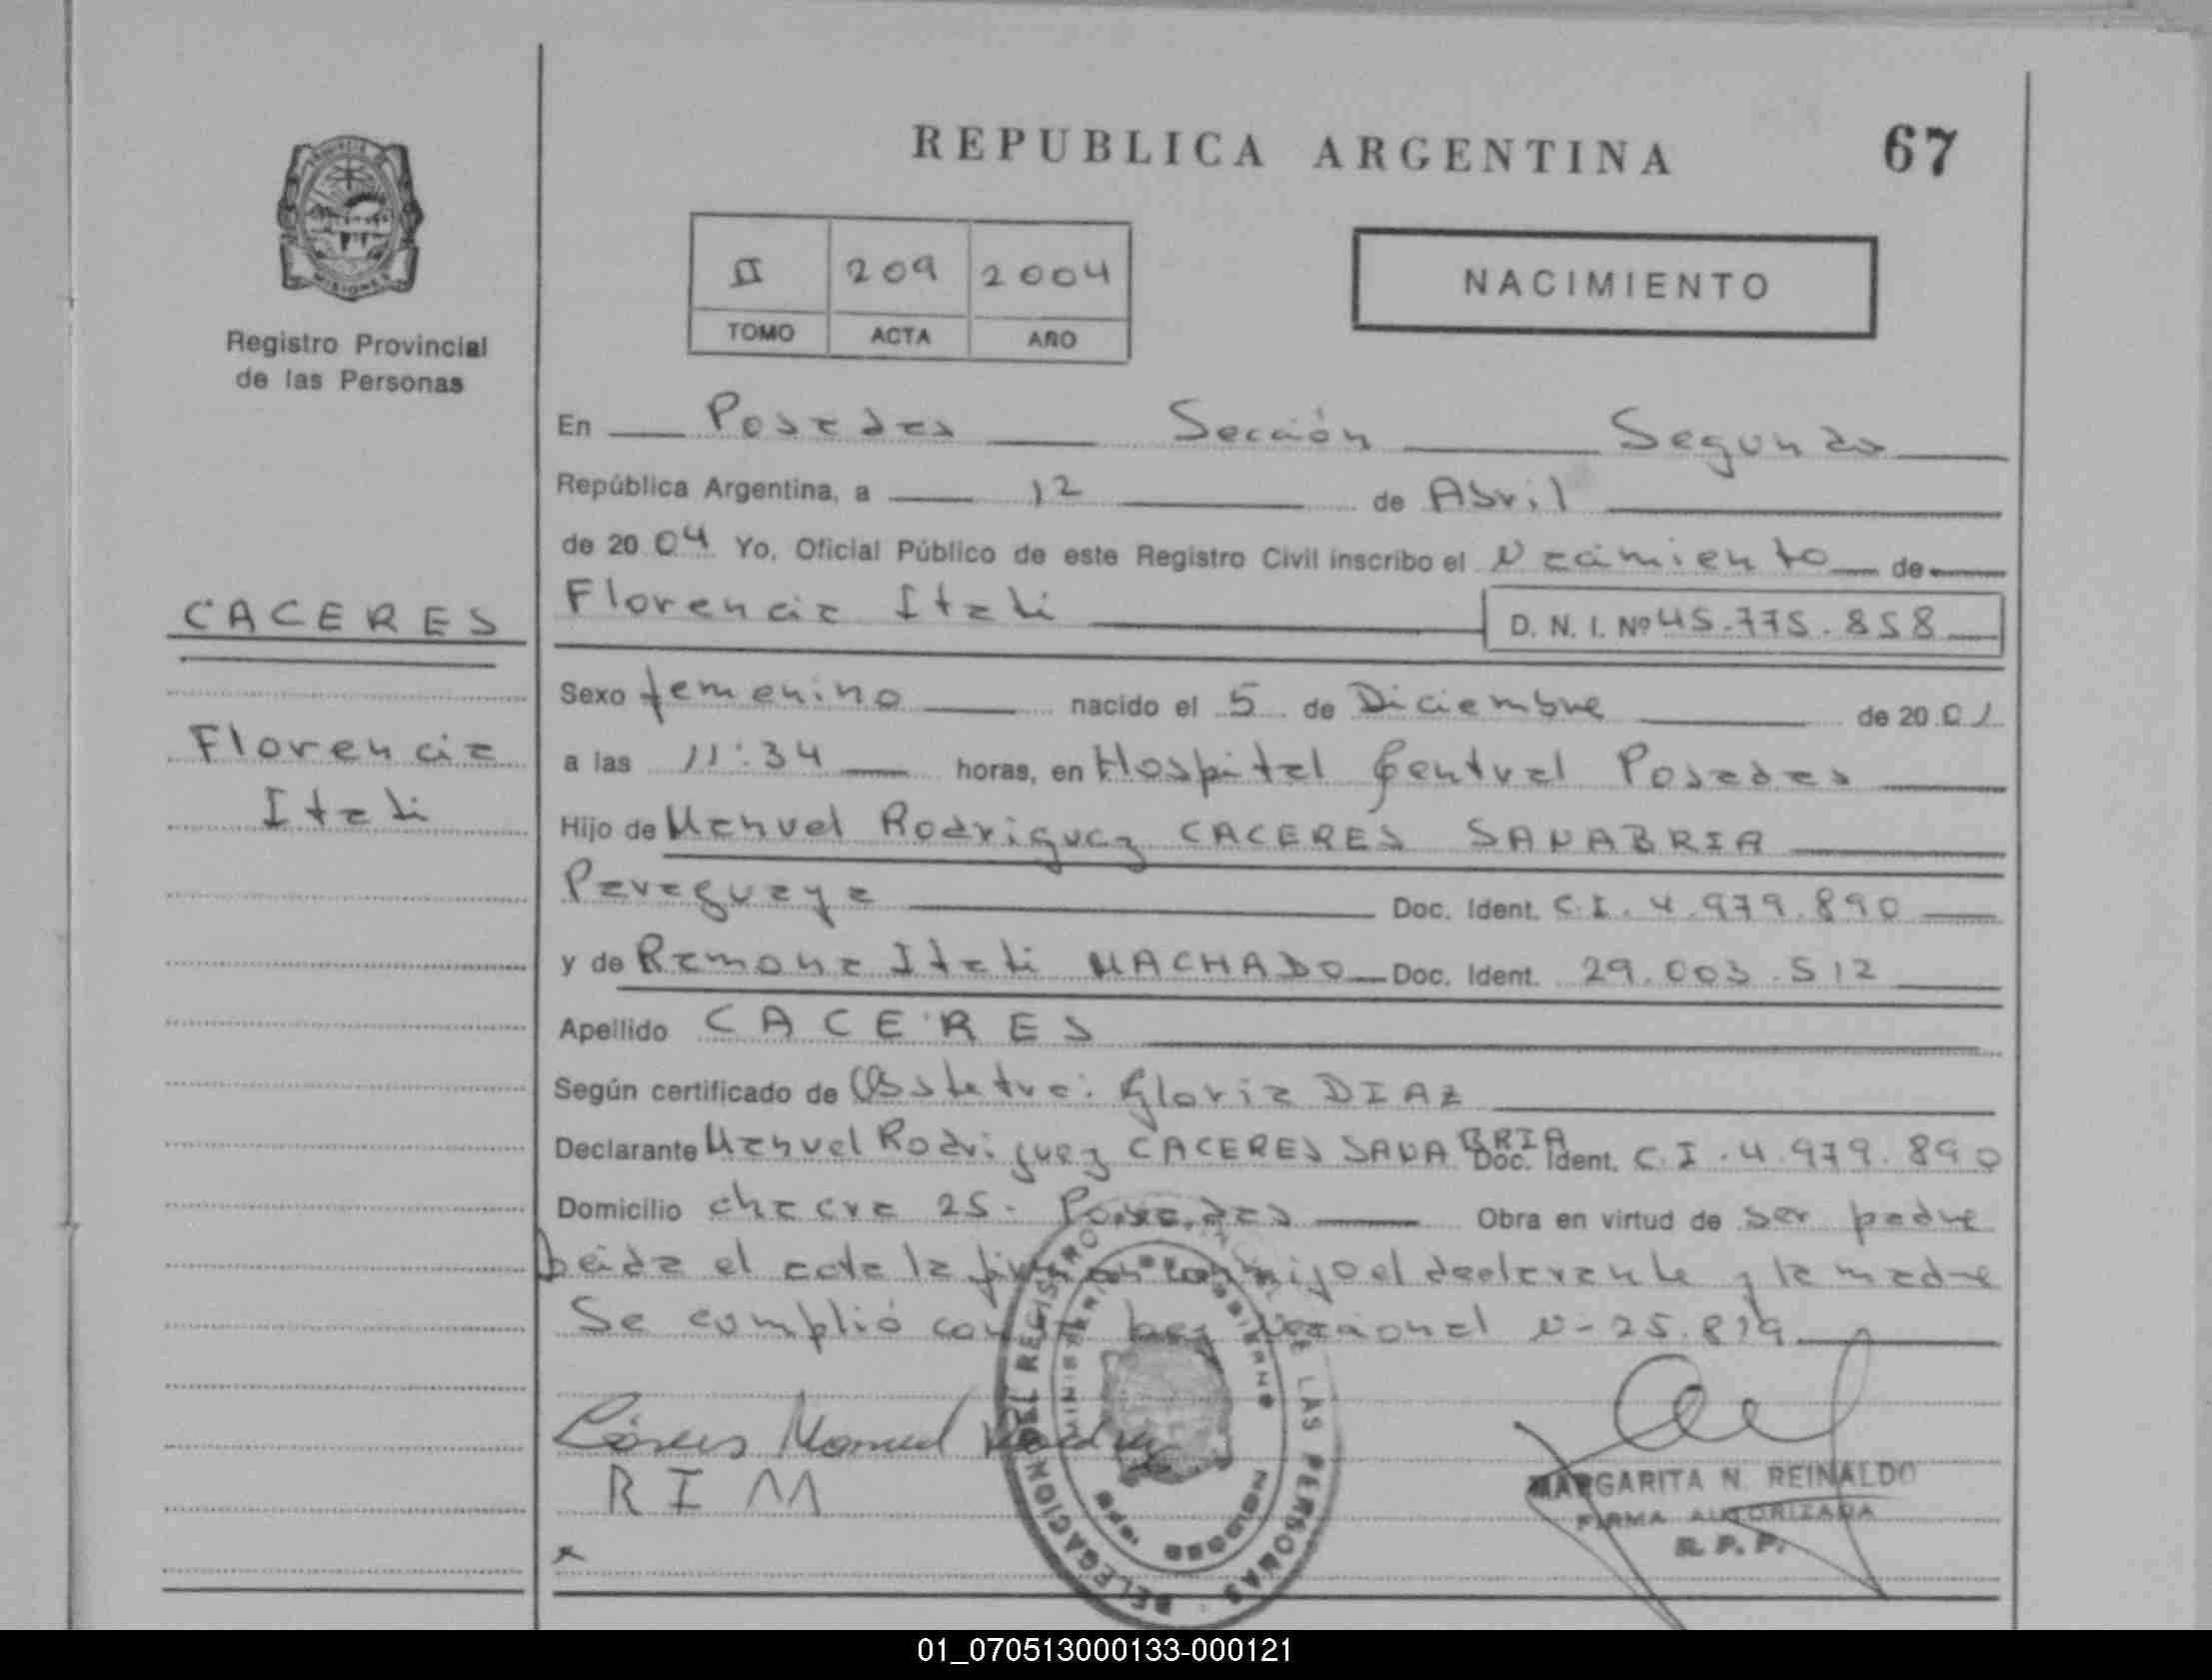 REPUBLICA ARGENTINA
67
II 209 2004
TOMO ACTA AÑO
NACIMIENTO
PROVINCIA DE MISIONES
Registro Provincial
de las Personas
En Posadas Sección Segunda
República Argentina, a 12 de Abril
de 2004 Yo, Oficial Público de este Registro Civil inscribo el Nacimiento de
CACERES
Florencia Itati
D. N. I. Nº 45.775.858
Sexo femenino nacido el 5 de Diciembre de 2001
Florencia
Itati
a las 11:34 horas, en Hospital Central Posadas
Hijo de Manuel Rodriguez CACERES SANABRIA
Paraguaya Doc. Ident. C.I. 4.979.890
y de Ramona Itati MACHADO Doc. Ident. 29.003.512
Apellido CACERES
Según certificado de Obstetra: Gloria DIAZ
Declarante Manuel Rodriguez CACERES SANABRIA Doc. Ident. C.I. 4.979.890
Domicilio chacra 25- Posadas Obra en virtud de ser padre
Leida el acta la firman conmigo el declarante y la madre
Se cumplió con la Ley Nacional N- 25.819
Cáseres Manuel
R I M
MARGARITA N. REINALDO
FIRMA AUTORIZADA
R. P. P.
DELEGACION DEL REGISTRO DE LAS PERSONAS
MINISTERIO DE GOBIERNO
MISIONES
01_070513000133-000121